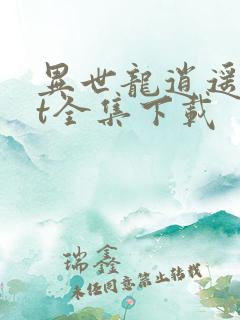 異世龍逍遥
t全集下载
瑞鑫
未经同意禁止转载